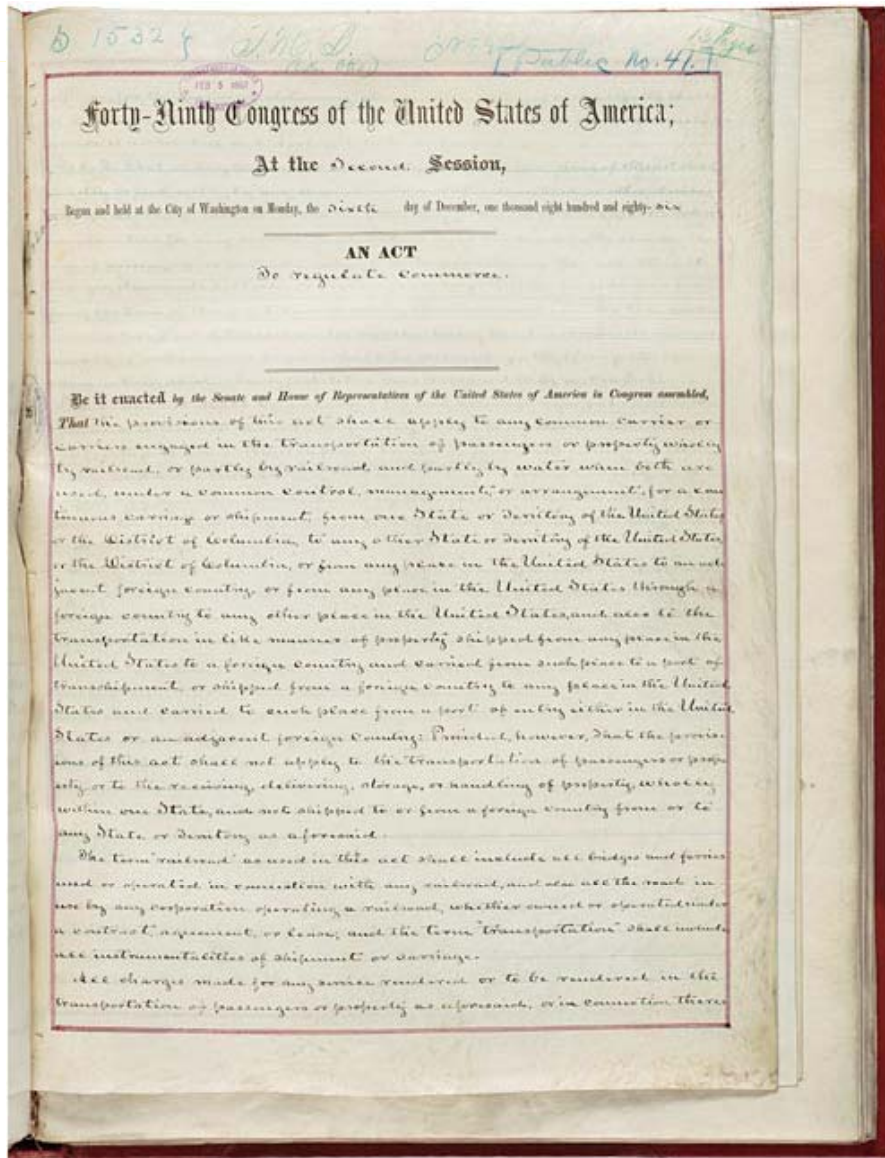 1532
[Public No. 41.]
FEB 5 1887
Forty-Ninth Congress of the United States of America;
At the Second Session,
Begun and held at the City of Washington on Monday, the sixth day of December, one thousand eight hundred and eighty-six
AN ACT
To regulate commerce.
Be it enacted by the Senate and House of Representatives of the United States of America in Congress assembled,
That the provisions of this act shall apply to any common carrier or
carriers engaged in the transportation of passengers or property wholly
by railroad, or partly by railroad and partly by water when both are
used, under a common control, management, or arrangement, for a con
tinuous carriage or shipment, from one State or Territory of the United States
or the District of Columbia, to any other State or Territory of the United States,
or the District of Columbia, or from any place in the United States to an ad
jacent foreign country, or from any place in the United States through a
foreign country to any other place in the United States, and also to the
transportation in like manner of property shipped from any place in the
United States to a foreign country and carried from such place to a port of
transshipment, or shipped from a foreign country to any place in the United
States and carried to such place from a port of entry either in the United
States or an adjacent foreign country: Provided, however, That the provis
ions of this act shall not apply to the transportation of passengers or prop
erty, or to the receiving, delivering, storage, or handling of property, wholly
within one State, and not shipped to or from a foreign country from or to
any State or Territory as aforesaid.
The term "railroad" as used in this act shall include all bridges and ferries
used or operated in connection with any railroad, and also all the road in
use by any corporation operating a railroad, whether owned or operated under
a contract, agreement, or lease; and the term "transportation" shall include
all instrumentalities of shipment or carriage.
All charges made for any service rendered or to be rendered in the
transportation of passengers or property as aforesaid, or in connection there